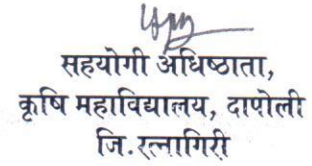 सहयोगी अधिष्ठाता,
कृषि महाविद्यालय, दापोली
जि.रत्नागिरी